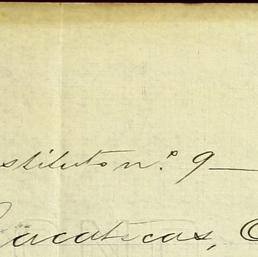 nstituto n.º 9—
Zacatecas,